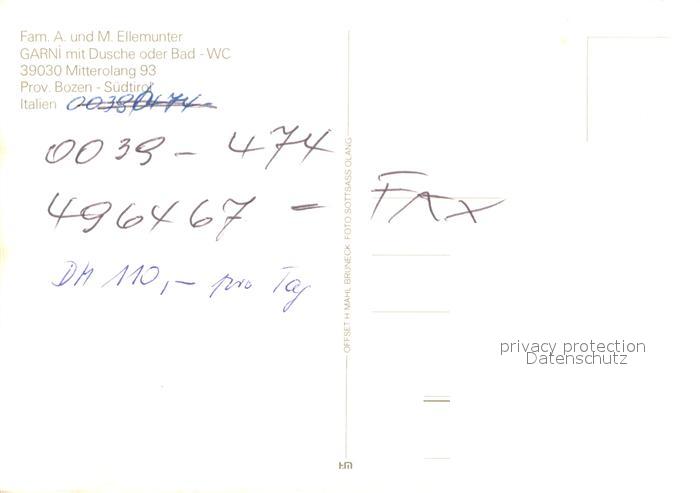 Fam. A. und M. Ellemunter
GARNI mit Dusche oder Bad - WC
39030 Mitterolang 93
Prov. Bozen - Südtirol
Italien
0039 - 474
496467 - FAX
DM 110,- pro Tag
OFFSET H. MAHL BRUNECK FOTO SOTTSASS OLANG
privacy protection
Datenschutz